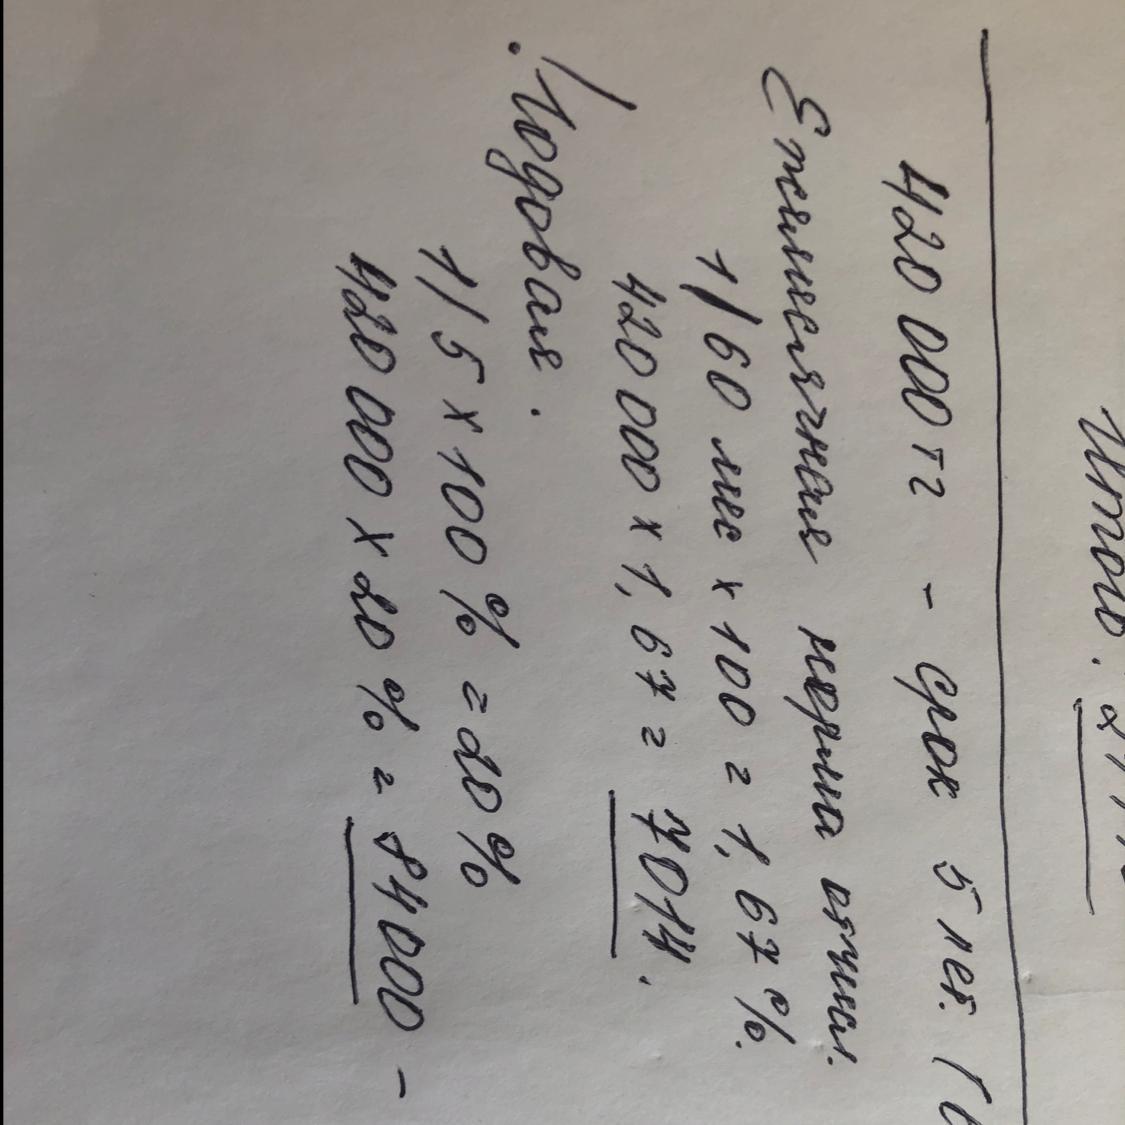 Итого: 21
420 000 тг - срок 5 лет. (
Ежемесячная норма отчисл.
1/60 мес х 100 = 1,67 %.
420 000 х 1,67 = 7014.
Годовая.
1/5 х 100 % = 20 %
420 000 х 20 % = 84000 -